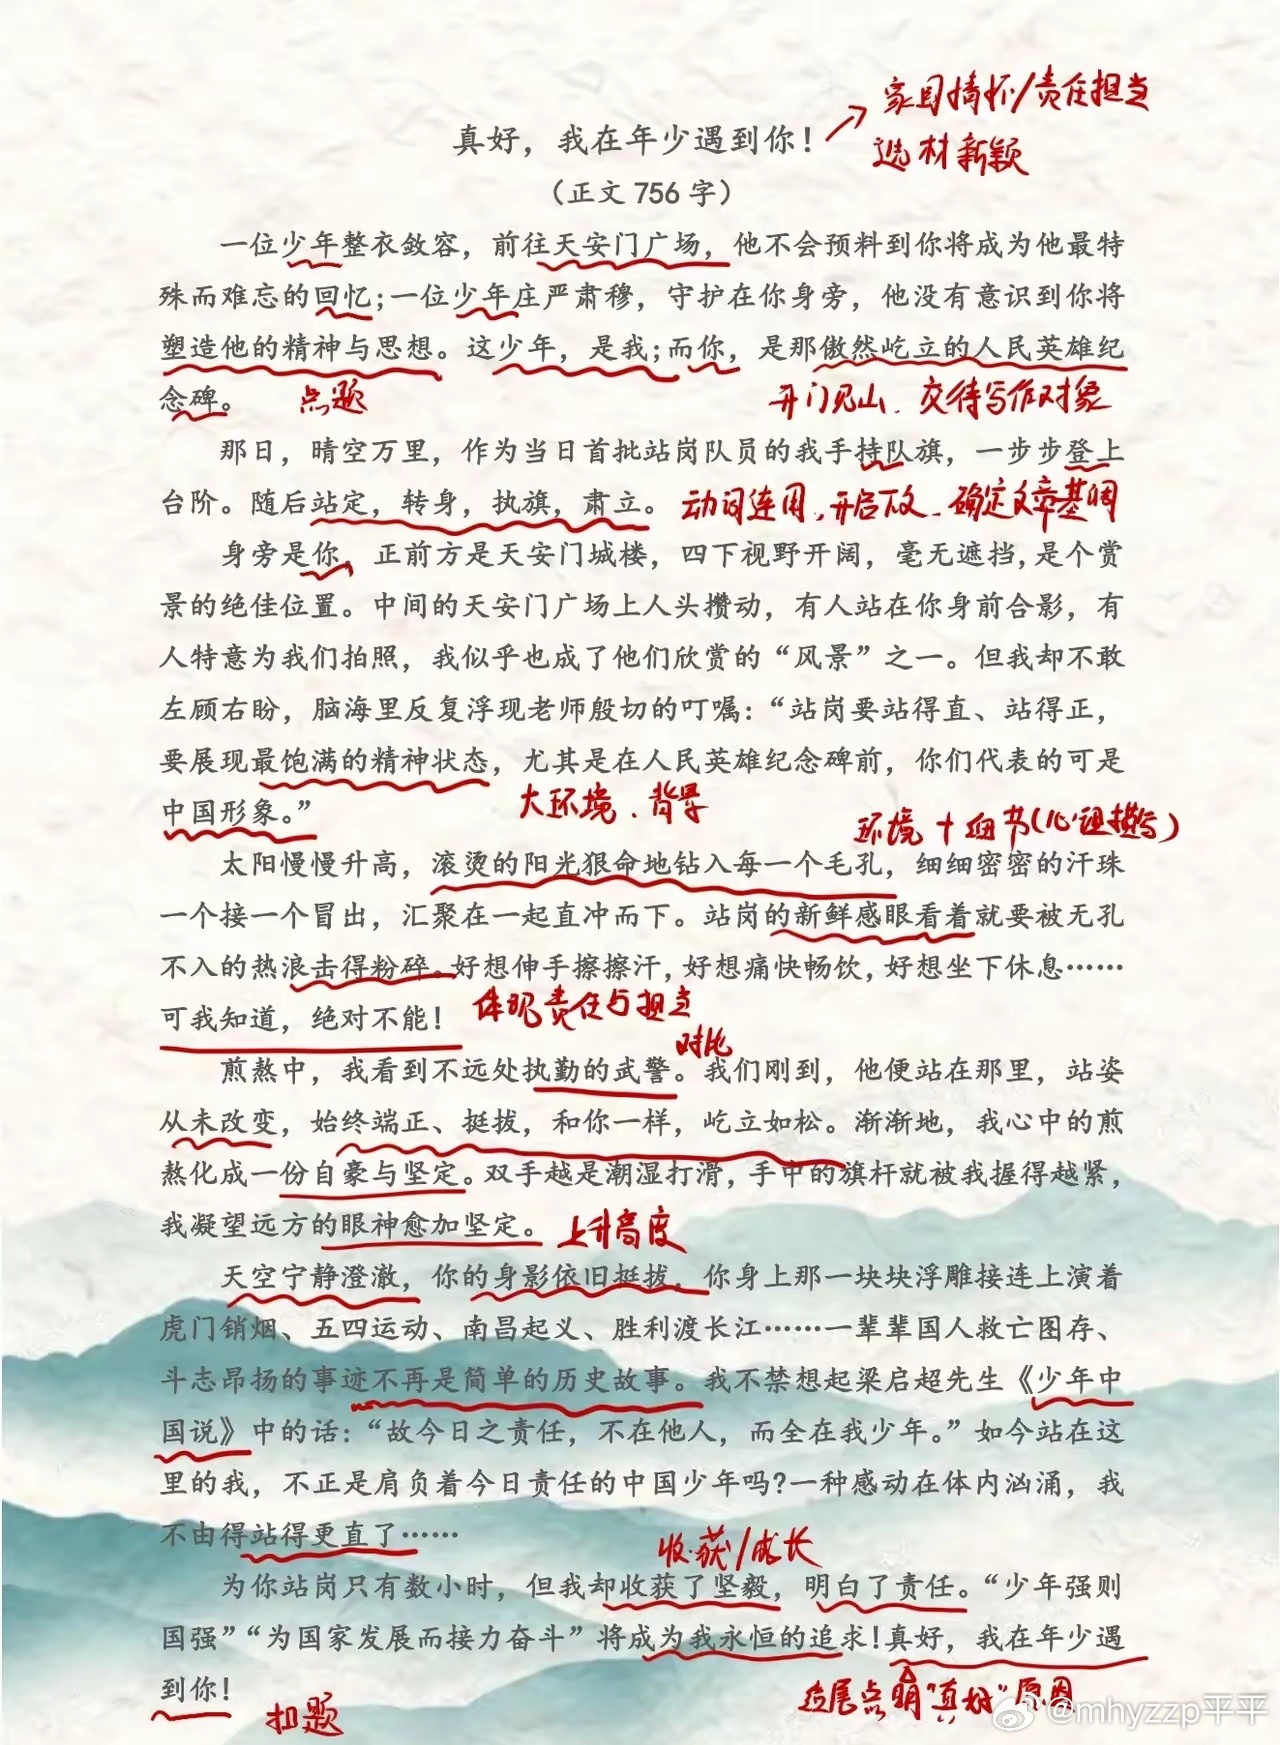 家国情怀/责任担当
真好，我在年少遇到你！
选材新颖
（正文 756 字）
一位少年整衣敛容，前往天安门广场，他不会预料到你将成为他最特
殊而难忘的回忆;一位少年庄严肃穆，守护在你身旁，他没有意识到你将
塑造他的精神与思想。这少年，是我;而你，是那傲然屹立的人民英雄纪
念碑。
点题
开门见山、交待写作对象
那日，晴空万里，作为当日首批站岗队员的我手持队旗，一步步登上
台阶。随后站定，转身，执旗，肃立。
动词连用、开启下文、确定文章基调
身旁是你，正前方是天安门城楼，四下视野开阔，毫无遮挡,是个赏
景的绝佳位置。中间的天安门广场上人头攒动，有人站在你身前合影，有
人特意为我们拍照，我似乎也成了他们欣赏的“风景”之一。但我却不敢
左顾右盼，脑海里反复浮现老师殷切的叮嘱：“站岗要站得直、站得正，
要展现最饱满的精神状态，尤其是在人民英雄纪念碑前，你们代表的可是
中国形象。”
大环境、背景
环境+细节(心理描写)
太阳慢慢升高，滚烫的阳光狠命地钻入每一个毛孔，细细密密的汗珠
一个接一个冒出，汇聚在一起直冲而下。站岗的新鲜感眼看着就要被无孔
不入的热浪击得粉碎。好想伸手擦擦汗,好想痛快畅饮,好想坐下休息……
可我知道，绝对不能！
体现责任与担当
对比
煎熬中，我看到不远处执勤的武警。我们刚到，他便站在那里，站姿
从未改变，始终端正、挺拔，和你一样，屹立如松。渐渐地，我心中的煎
熬化成一份自豪与坚定。双手越是潮湿打滑,手中的旗杆就被我握得越紧，
我凝望远方的眼神愈加坚定。
上升高度
天空宁静澄澈，你的身影依旧挺拔，你身上那一块块浮雕接连上演着
虎门销烟、五四运动、南昌起义、胜利渡长江……一辈辈国人救亡图存、
斗志昂扬的事迹不再是简单的历史故事。我不禁想起梁启超先生《少年中
国说》中的话：“故今日之责任，不在他人，而全在我少年。”如今站在这
里的我，不正是肩负着今日责任的中国少年吗?一种感动在体内汹涌，我
不由得站得更直了……
收获/成长
为你站岗只有数小时，但我却收获了坚毅，明白了责任。“少年强则
国强”“为国家发展而接力奋斗”将成为我永恒的追求!真好，我在年少遇
到你！
扣题
点明“真好”原因
@mhyzzp平平